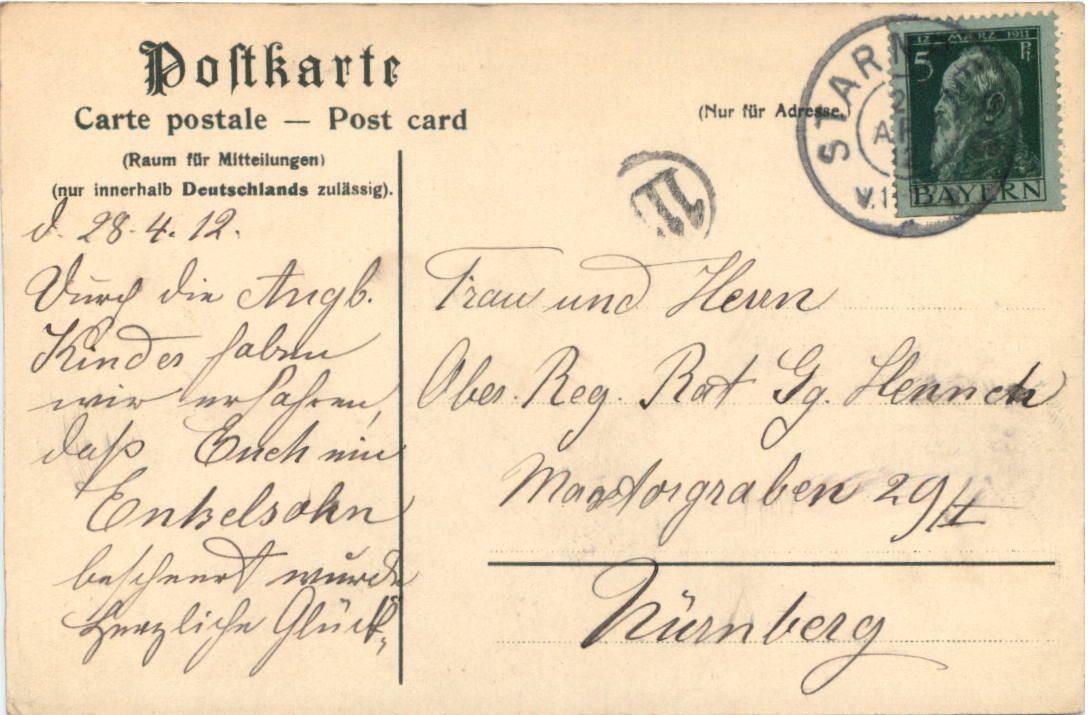 Postkarte
Carte postale — Post card
(Raum für Mitteilungen)
(nur innerhalb Deutschlands zulässig).
(Nur für Adresse.)
STARN
2
AP
V.1
12 MÆRZ 1911
5 Pf
BAYERN
d. 28.4.12.
Durch die Augb.
Kinder haben
wir erfahren,
daß Euch ein
Enkelsohn
bescheert wurde
Herzliche Glück-
Frau und Herrn
Ober. Reg. Rat Gg. Hennch
Maxtorgraben 29/I
Nürnberg